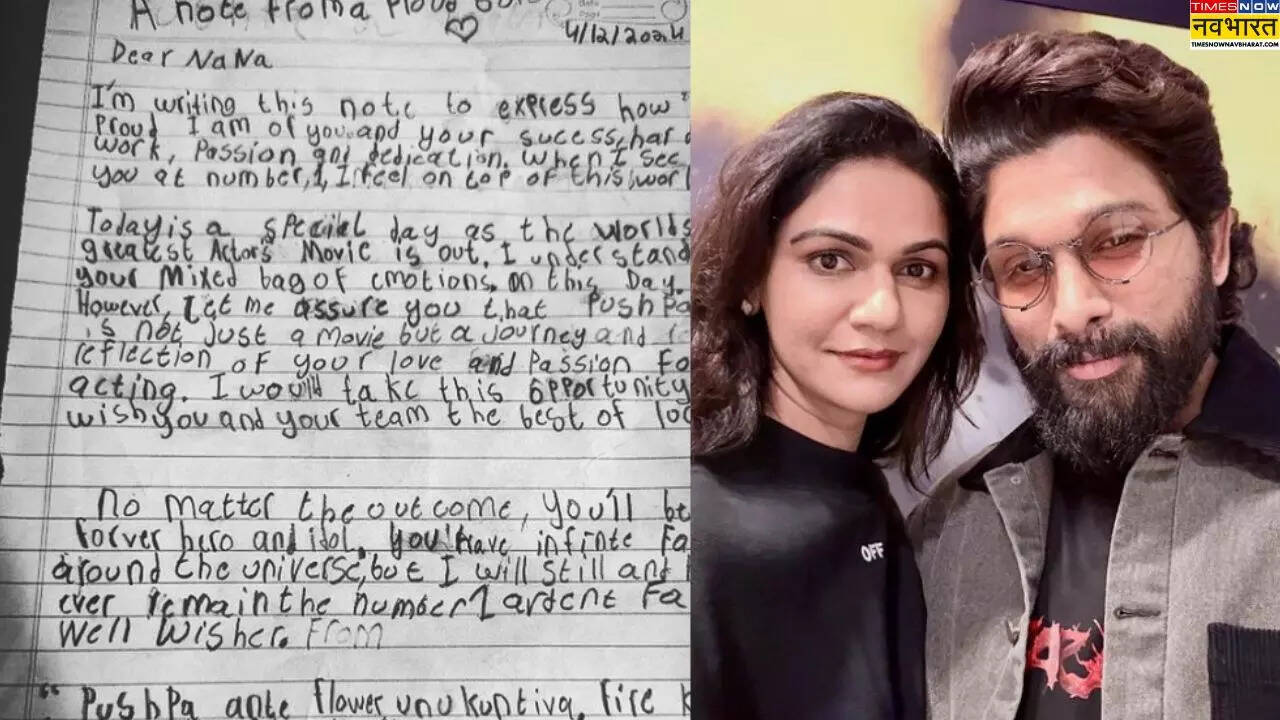 A note from a Proud
4/12/2024
Dear NaNa
I'm writing this note to express how
Proud I am of you and your sucess, har
work, Passion and dedication. when I see
you at number, 1, I feel on top of this worl
Today is a special day as the worlds
greatest Actor's Movie is out. I understand
your Mixed bag of emotions. on this Day.
However, Let me assure you that PUSHPA
is not just a movie but a journey and
reflection of your love and Passion fo
acting. I would take this opportunity
wish you and your team the best of
No matter the outcome, you'll be
forver hero and idol. you'have infinte Fa
around the universe, but I will still and
ever remain the number 1 ardent Fa
well wisher. From
"Pushpa ante flower unukuntiva, fire k
OFF
TIMES NOW
नवभारत
TIMESNOWNAVBHARAT.COM